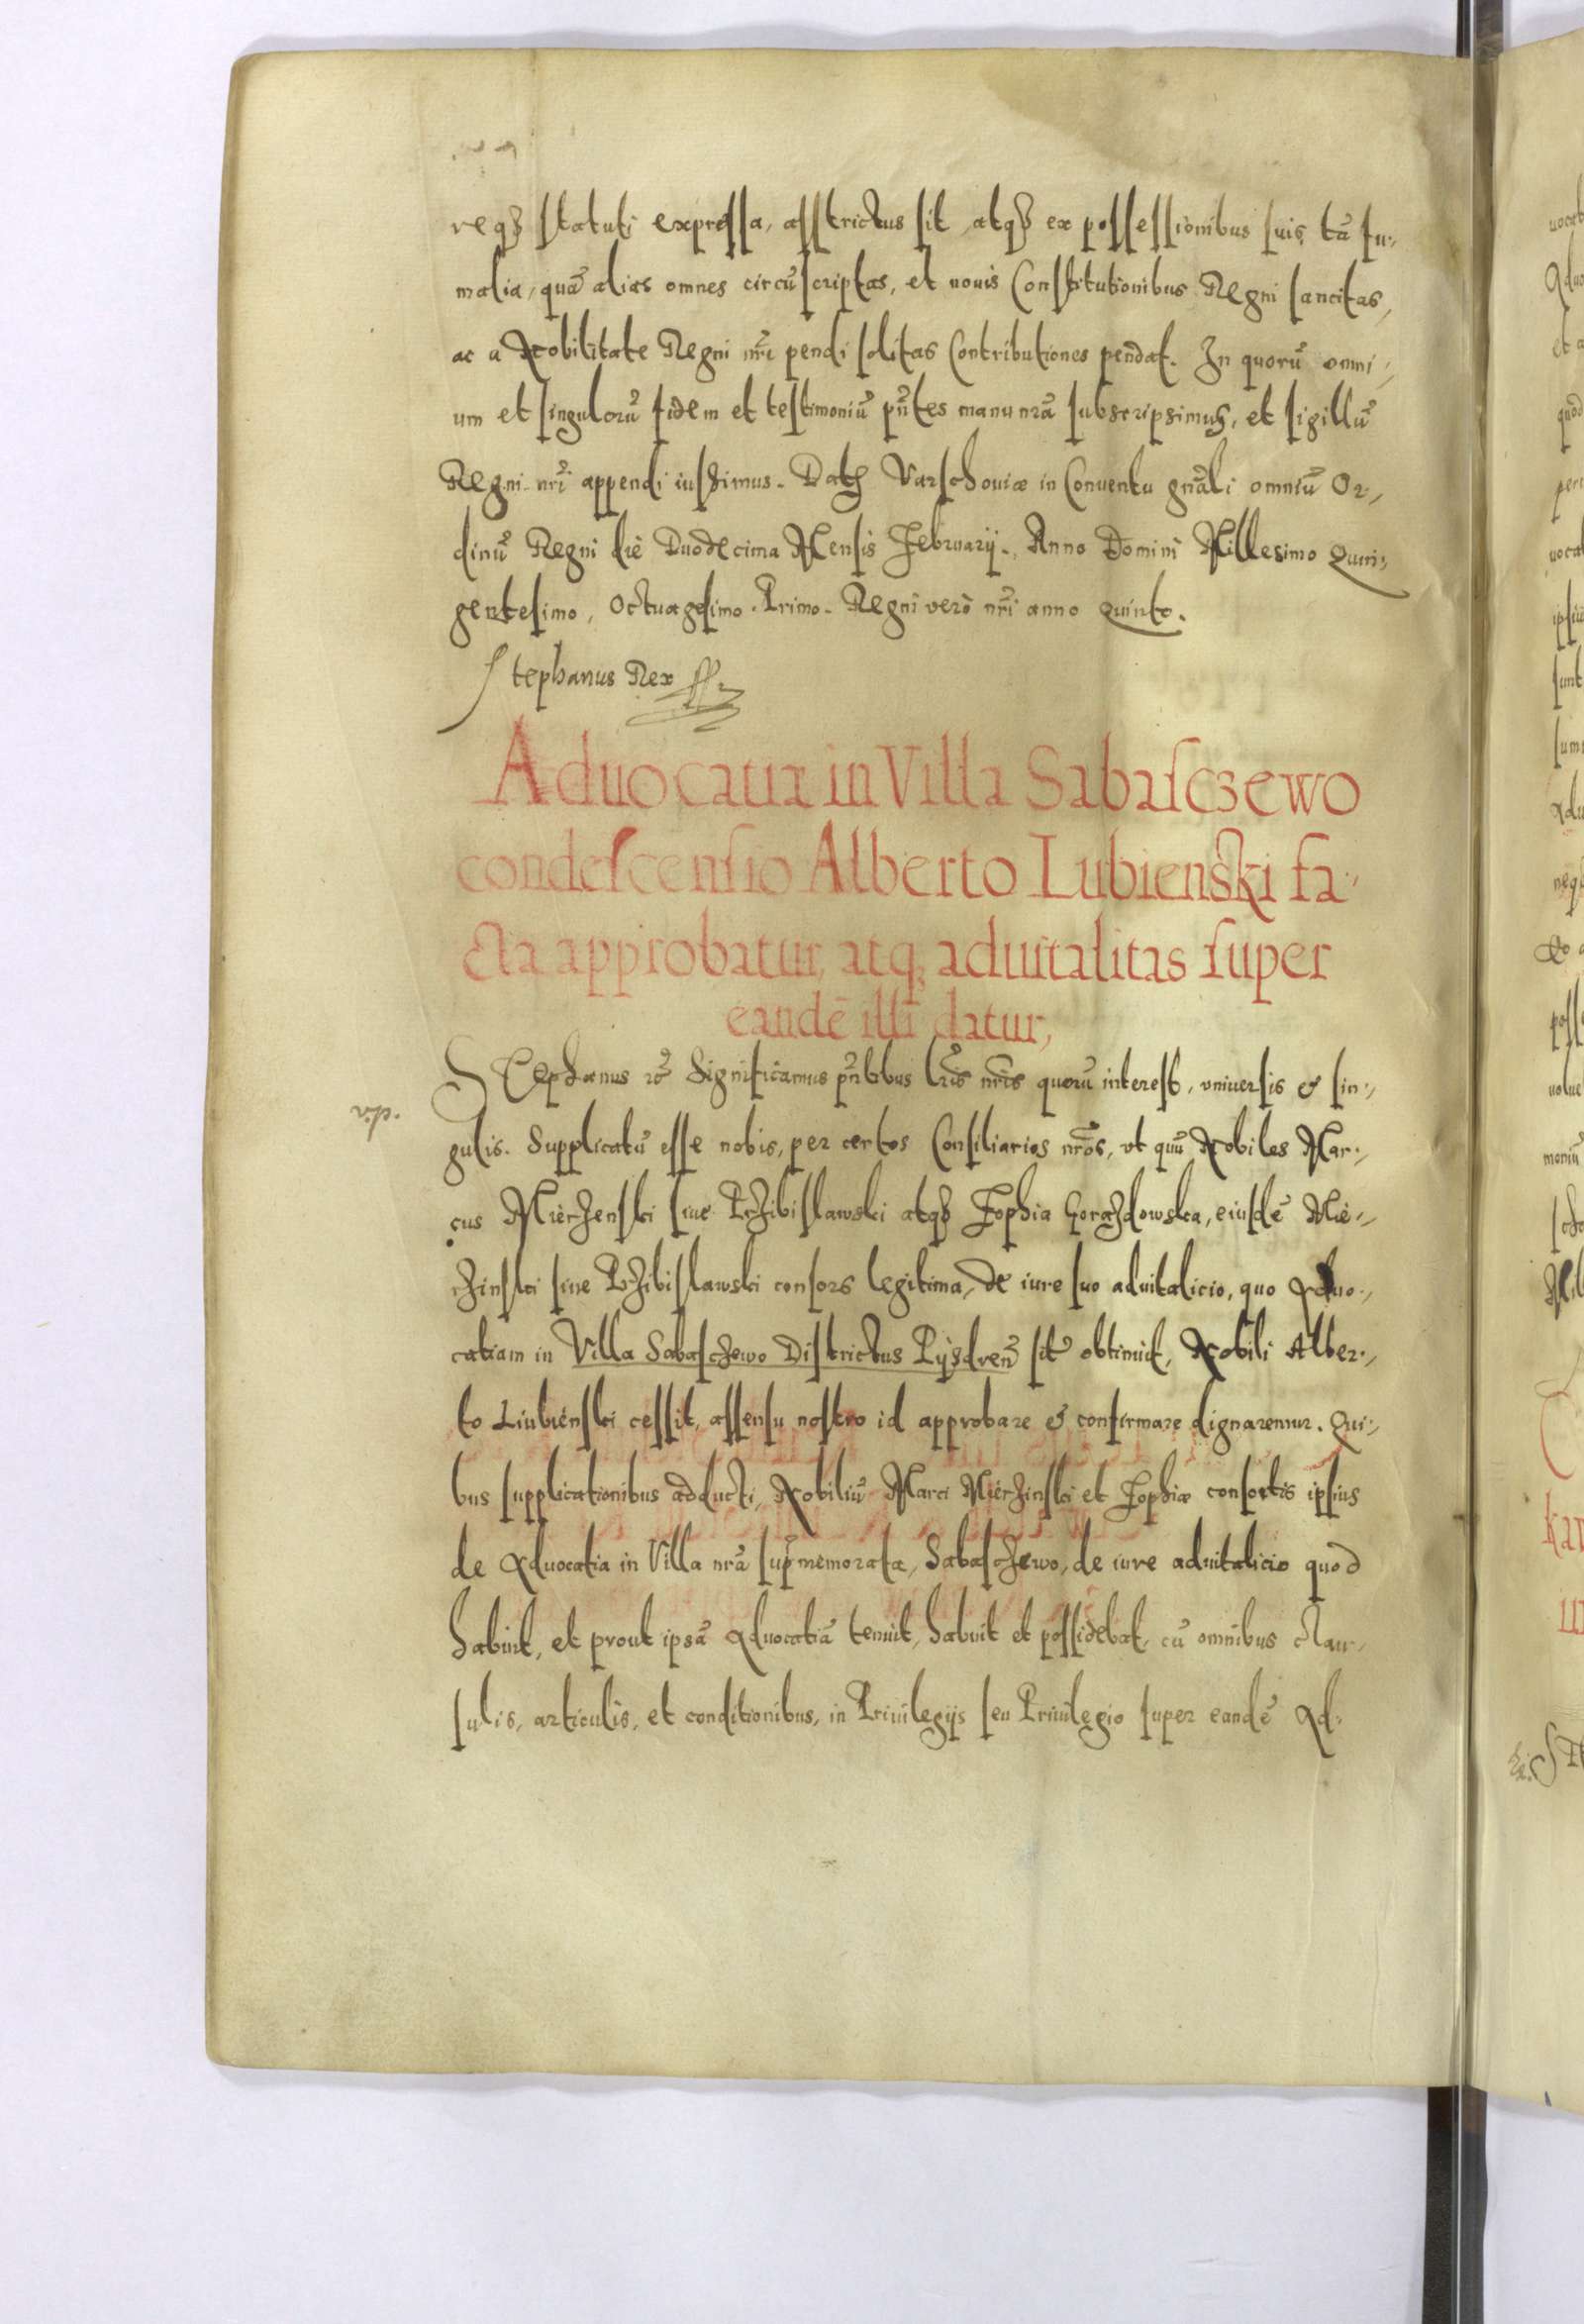 reqȝ statuti expressa, asstrictus sit, atqȝ ex possessionibus suis tā fu-,
malia, quā alias omnes circūscriptas, et nouis Constitutionibus Regni sancitas,
ac a Nobilitate Regni nr̄i pendi solitas Contributiones pendat. In quorū omni-,
um et singulorū fidem et testimoniū pn̄tes manu nrā subscripsimus, et sigillū
Regni nr̄i appendi iussimus. Datȝ Varschouiæ in Conuentu gn̄ali omniū Or-,
dinū Regni die Duodecima Mensis February. Anno Domini Millesimo Quin-,
gentesimo, Octuagesimo Primo. Regni vero nr̄i anno Quinto.
Stephanus Rex
Aduocatiæ in Villa Sabasczewo
condescensio Alberto Lubienski fa-
cta approbatur, atqȝ aduitalitas super
eandē illi datur,
Stephanus rē Significamus pn̄tibus lr̄is nr̄is quorū interest, vniuersis & sin-,
gulis. Supplicatū esse nobis, per certos Consiliarios nr̄os, vt quū Nobiles Mar-,
cus Mierzenski siue Przibislawski atqȝ Sophia Gorazdowska, eiusdē Mie-,
rzinski siue Przibislawski consors legitima, de iure suo aduitalicio, quo Aduo-,
catiam in Villa Sabaschewo Districtus Pysdreñ sitā obtinuit, Nobili Alber-,
to Liubienski cessit, assensu nostro id approbare & confirmare dignaremur. Qui-,
bus supplicationibus adducti, Nobiliū Marci Mierzinski et Sophiæ consortis ipsius
de Aduocatia in Villa nrā supmemorata, Sabaschewo, de iure aduitalicio quod
habuit, et prout ipsā Aduocatiā tenuit, habuit et possidebat, cū omnibus clau-,
sulis, articulis, et conditionibus, in Priuilegijs seu Priuilegio super eandē Ad-